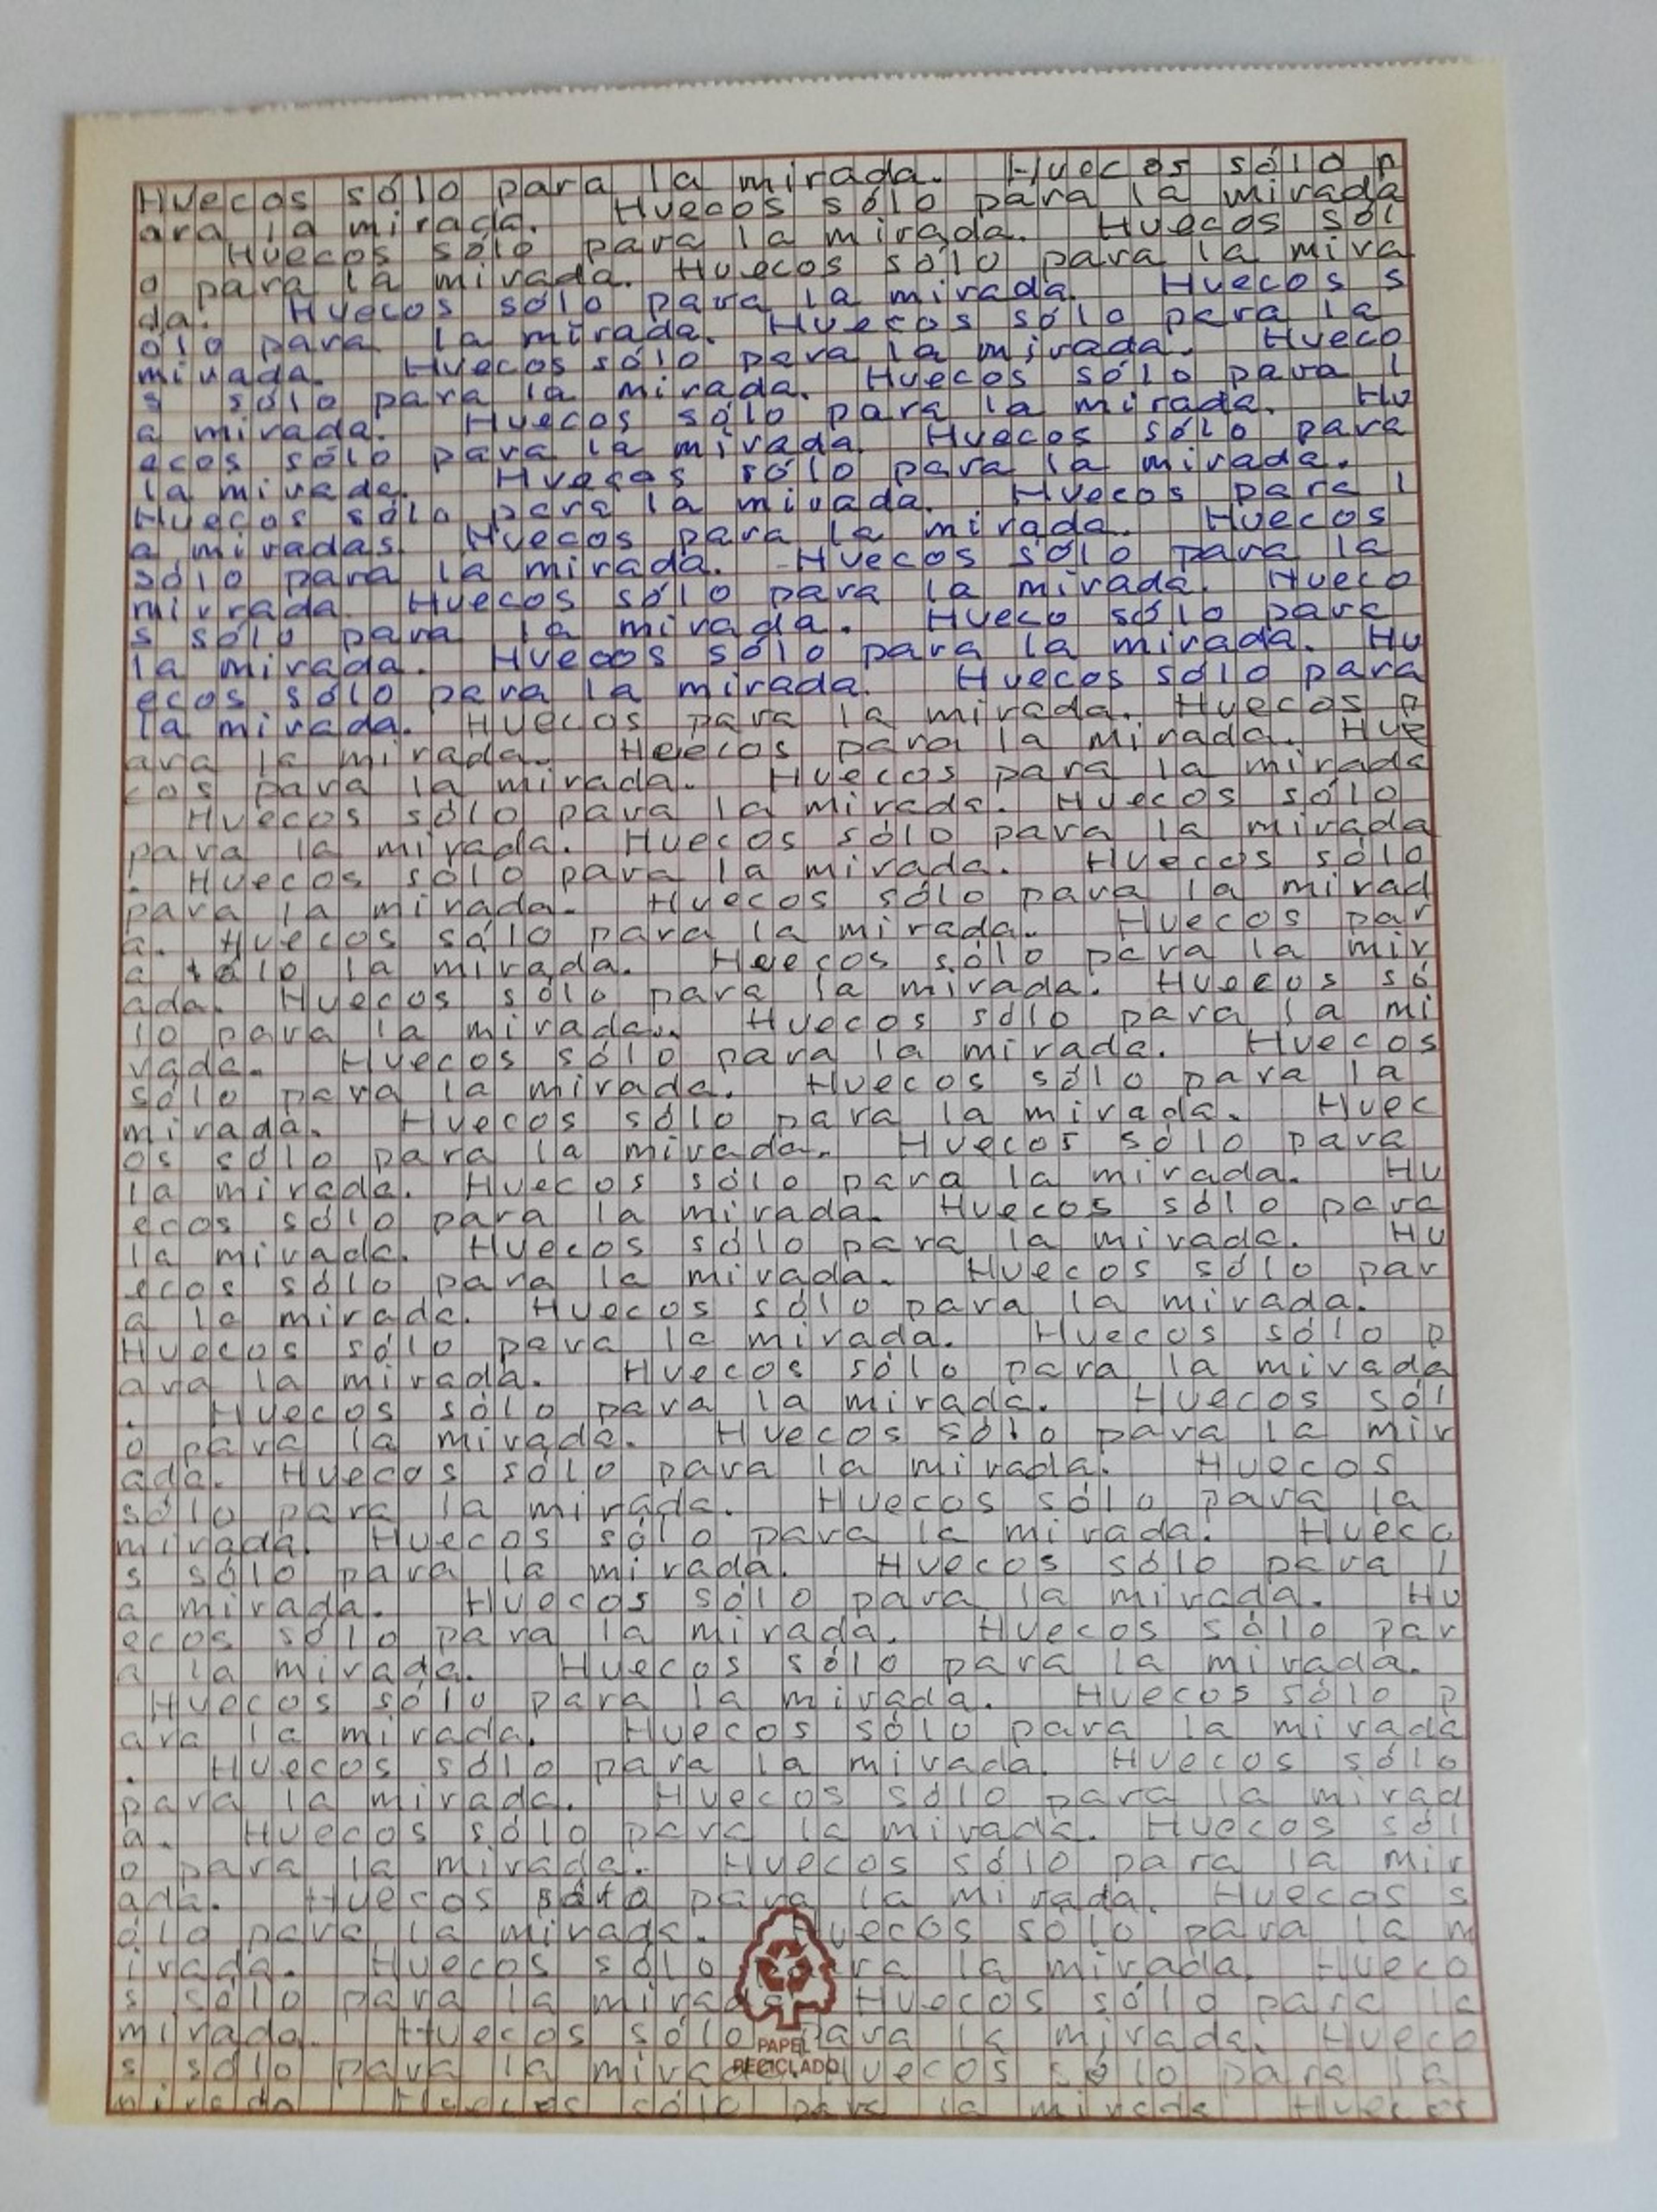 Huecos sólo para la mirada. Huecos sólo p
ara la mirada. Huecos sólo para la mirada
Huecos sólo para la mirada. Huecos sól
o para la mirada. Huecos sólo para la mira
da. Huecos sólo para la mirada. Huecos s
ólo para la mirada. Huecos sólo para la
mirada. Huecos sólo para la mirada. Hueco
s sólo para la mirada. Huecos sólo para l
a mirada. Huecos sólo para la mirada. Hu
ecos sólo para la mirada. Huecos sólo para
la mirada. Huecos sólo para la mirada.
Huecos sólo para la mirada. Huecos para l
a miradas. Huecos para la mirada. Huecos
sólo para la mirada. Huecos sólo para la
mirrada. Huecos sólo para la mirada. Hueco
s sólo para la mirada. Hueco sólo para
la mirada. Huecos sólo para la mirada. Hu
ecos sólo para la mirada. Huecos sólo para
la mirada. Huecos para la mirada. Huecos p
ara la mirada. Heecos para la mirada. Hue
cos para la mirada. Huecos para la mirada
Huecos sólo para la mirada. Huecos sólo
para la mirada. Huecos sólo para la mirada
. Huecos sólo para la mirada. Huecos sólo
para la mirada. Huecos sólo para la mirad
a. Huecos sólo para la mirada. Huecos par
a sólo la mirada. Heecos sólo para la mir
ada. Huecos sólo para la mirada. Huecos só
lo para la mirada. Huecos sólo para la mi
rada. Huecos sólo para la mirada. Huecos
sólo para la mirada. Huecos sólo para la
mirada. Huecos sólo para la mirada. Huec
os sólo para la mirada. Huecos sólo para
la mirada. Huecos sólo para la mirada. Hu
ecos sólo para la mirada. Huecos sólo para
la mirada. Huecos sólo para la mirada. Hu
ecos sólo para la mirada. Huecos sólo par
a la mirada. Huecos sólo para la mirada.
Huecos sólo para la mirada. Huecos sólo p
ara la mirada. Huecos sólo para la mirada
. Huecos sólo para la mirada. Huecos sól
o para la mirada. Huecos sólo para la mir
ada. Huecos sólo para la mirada. Huecos
sólo para la mirada. Huecos sólo para la
mirada. Huecos sólo para la mirada. Hueco
s sólo para la mirada. Huecos sólo para l
a mirada. Huecos sólo para la mirada. Hu
ecos sólo para la mirada. Huecos sólo par
a la mirada. Huecos sólo para la mirada.
Huecos sólo para la mirada. Huecos sólo p
ara la mirada. Huecos sólo para la mirada
. Huecos sólo para la mirada. Huecos sólo
para la mirada. Huecos sólo para la mirad
a. Huecos sólo para la mirada. Huecos sól
o para la mirada. Huecos sólo para la mir
ada. Huecos sólo para la mirada. Huecos s
ólo para la mirada. Huecos sólo para la m
irada. Huecos sólo para la mirada. Hueco
s sólo para la mirada. Huecos sólo para la
mirada. Huecos sólo para la mirada. Hueco
s sólo para la mirada Huecos sólo para la
mirada Huecos sólo para la mirada Huecos
PAPEL
RECICLADO